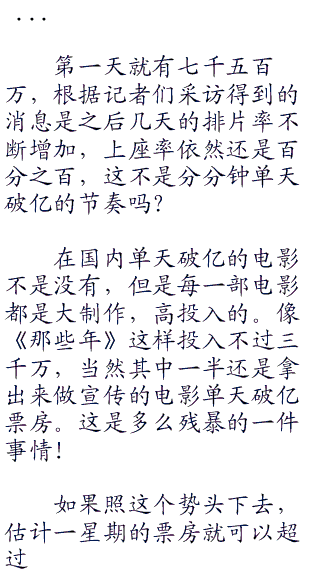 ...
第一天就有七千五百
万，根据记者们采访得到的
消息是之后几天的排片率不
断增加，上座率依然还是百
分之百，这不是分分钟单天
破亿的节奏吗？
在国内单天破亿的电影
不是没有，但是每一部电影
都是大制作，高投入的。像
《那些年》这样投入不过三
千万，当然其中一半还是拿
出来做宣传的电影单天破亿
票房。这是多么残暴的一件
事情！
如果照这个势头下去，
估计一星期的票房就可以超
过